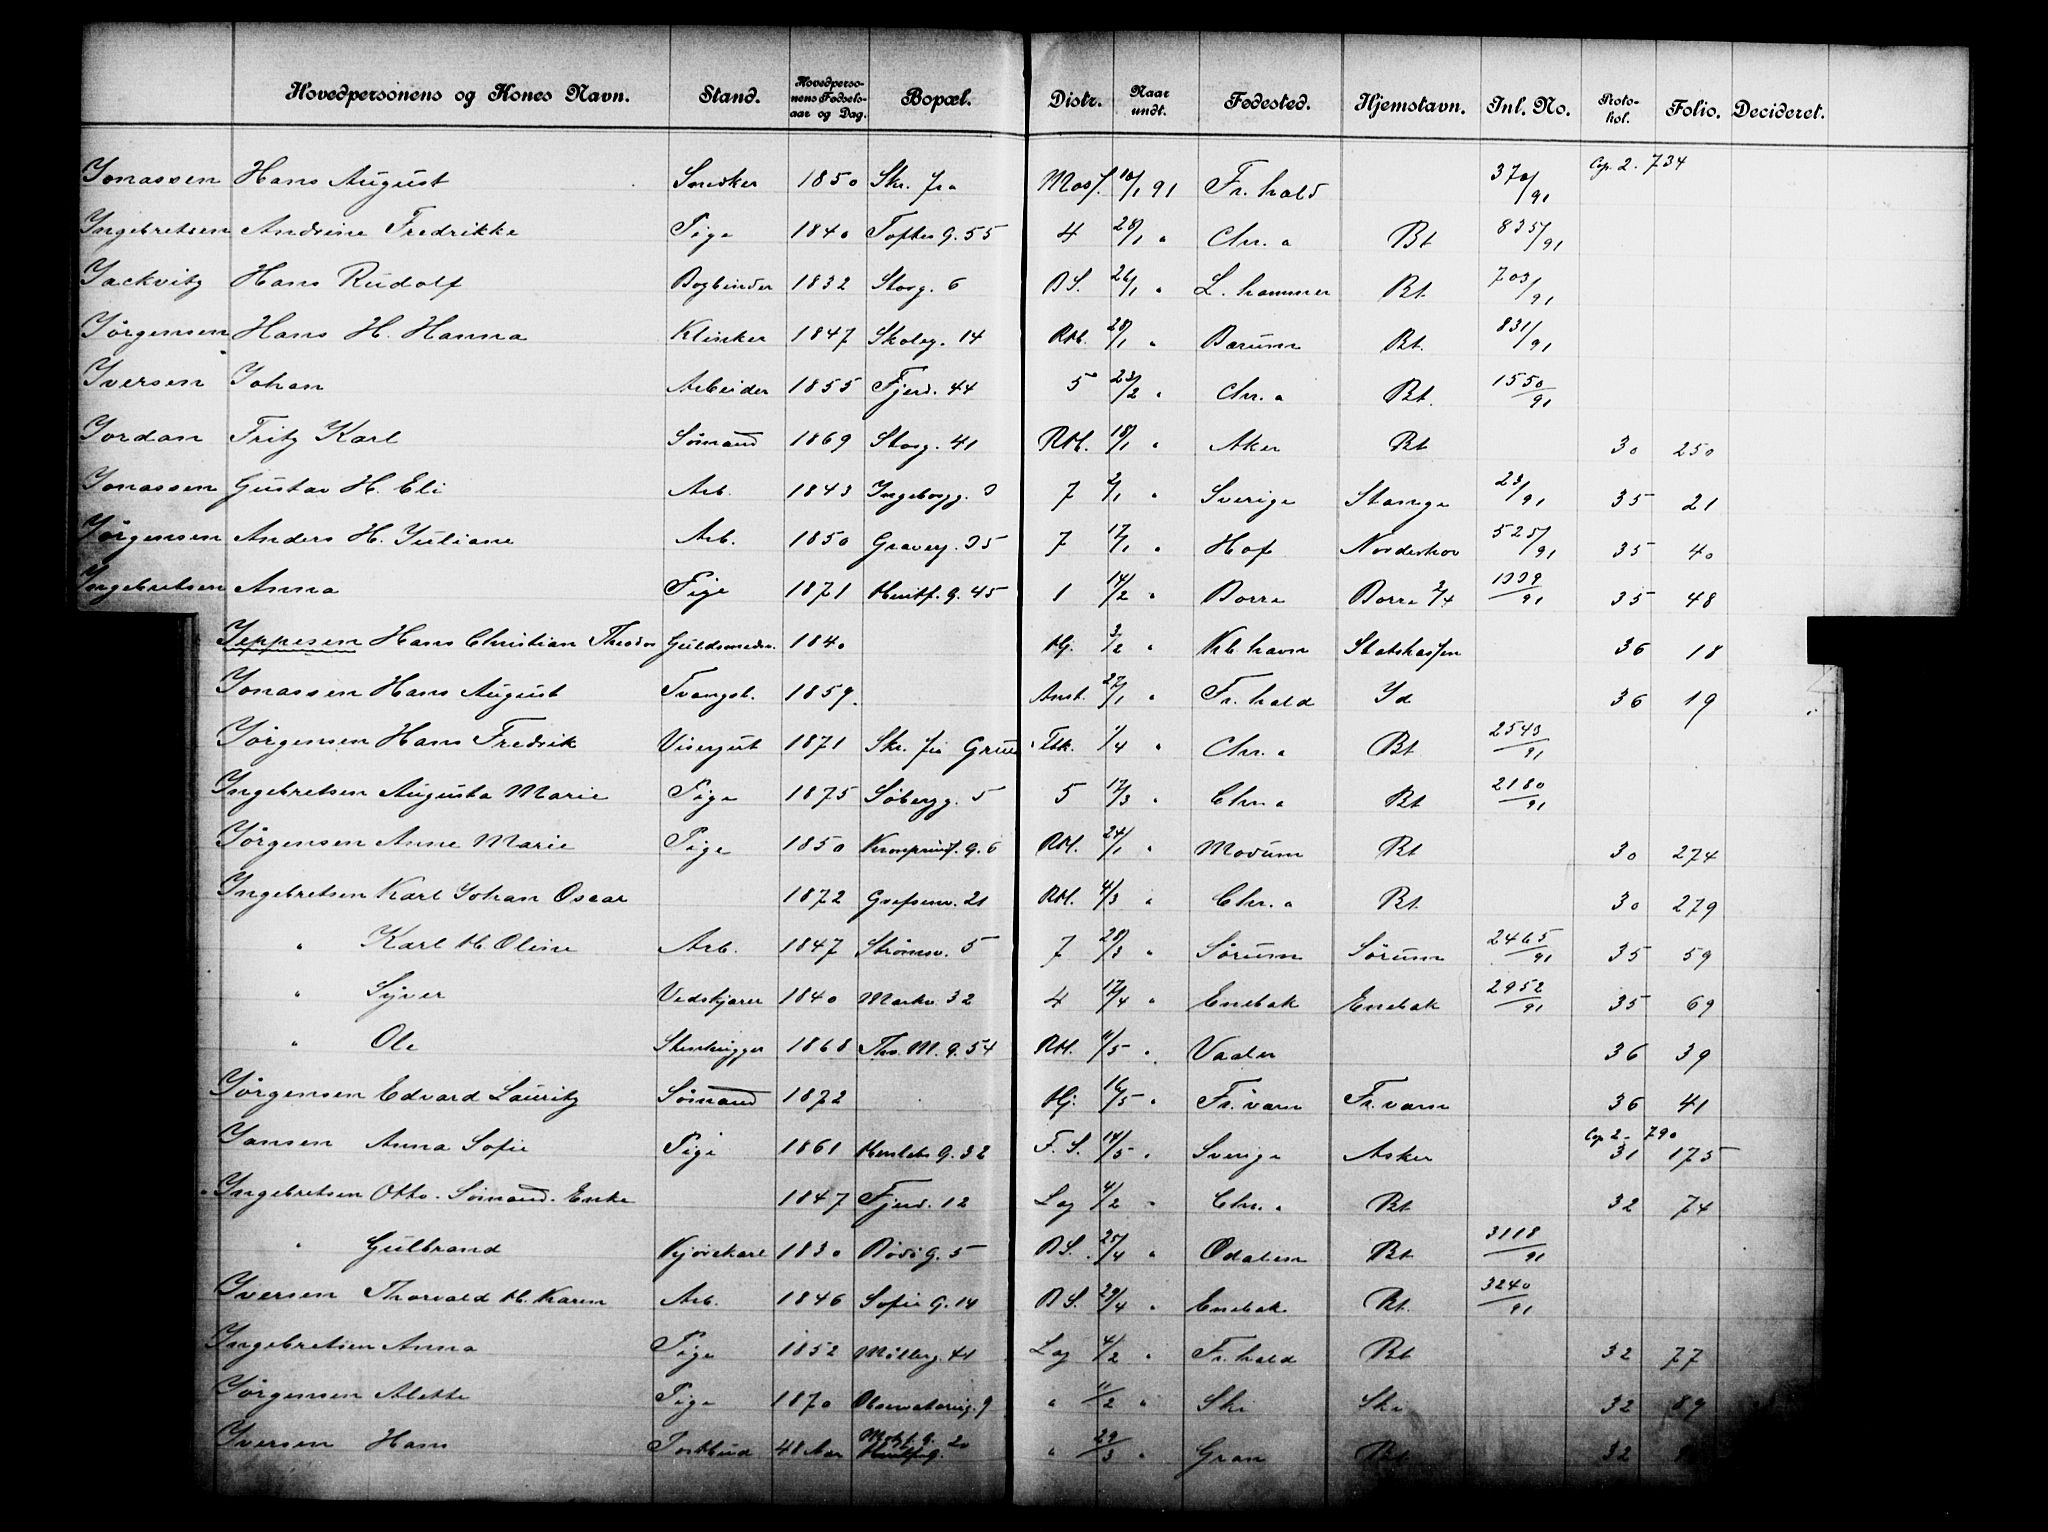 Hovedpersonens og Kones Navn. Stand. Hovedpersonens Fødselsaar og Dag. Bopæl. Distr. Naar undt. Fødested. Hjemstavn. Inl. No. Protokol. Folio. Decideret.
Jonassen Hans August Snedker 1850 Skr. fra Moss. 10/1 91 Fr.hald 370/91 Cop. 2. 734
Ingebretsen Andrine Fredrikke Pige 1840 Toftes G. 55 4 28/1 " Chr.a Bt 835/91
Jackvitz Hans Rudolf Bogbinder 1832 Storg. 6 B.S. 26/1 " L.hammer Bt. 703/91
Jørgensen Hans H. Hanna Klinker 1847 Skoleg. 14 RH. 28/1 " Bærum Bt. 831/91
Iversen Johan Arbeider 1855 Fjerd. 44 5 23/2 " Chr.a Bt. 1550/91
Jordan Fritz Karl Sømand 1869 Storg. 41 RH. 18/1 " Aker Bt 30 250
Jonassen Gustav H. Eli Arb. 1843 Ingeborgg. 3 7 2/1 " Sverige Stange 23/91 35 21
Jørgensen Anders H. Juliane Arb. 1850 Graverg. 35 7 17/1 " Hof Norderhov 525/91 35 40
Ingebretsen Anna Pige 1871 Huitf. G. 45 1 14/2 " Borre Borre 2/4 1339/91 35 48
Jeppesen Hans Christian Theodor Guldsmedsv. 1840 Hj. 3/2 " Kb.havn Statskassen 36 18
Jonassen Hans August Tvangst. 1859. Anst. 27/1 " Fr.hald Id 36 19
Jørgensen Hans Fredrik Visergut 1871 Skr. fra Grue Tbk. 1/4 " Chr.a Bt 2543/91
Ingebretsen Augusta Marie Pige 1875 Søbergg. 5 5 17/3 " Chr.a Bt 2180/91
Jørgensen Anne Marie Pige 1850 Kronprins. G. 6 RH. 24/1 " Modum Bt 30 274
Ingebretsen Karl Johan Oscar 1872 Grefsenv. 21 RH. 4/3 " Chr.a Bt. 30 279
" Karl H. Oline Arb. 1847 Strømsv. 5 7 28/3 " Sørum Sørum 2465/91 35 59
" Syver Vedskjærer 1840 Markv. 32 4 17/4 " Enebak Enebak 2952/91 35 69
" Ole Stenhugger 1868 Ths. M. G. 54 RH. 11/5 " Vaaler 36 39
Jørgensen Edvard Lauritz Sømand 1872 Hj. 16/5 " Fr.værn Fr.værn 36 41
Jansen Anna Sofie Pige 1861 Herslebs G. 32 F.S. 14/5 " Sverige Asker Cop 2 - 790 31 175
Ingebretsen Otto. Sømand. Enke 1847 Fjerd. 12 Log 4/2 " Chr.a Bt 32 74
" Gulbrand Kjørekarl 1830 Bødg. 5 B.S. 25/4 " Odalen Bt 3118/91
Iversen Thorvald H. Karen Arb. 1846 Sofie G. 14 B.S. 29/4 " Enebak Bt. 3240/91
Ingebretsen Anna Pige 1852 Mølleg. 41 Log 4/2 " Fr.hald Bt 32 77
Jørgensen Alette Pige 1870 Observatorieg. 9 " 11/2 " Ski Ski 32 89
Iversen Hans Postbud 48 Aar Huitf. G. 20 " 29/3 " Gran Bt 32